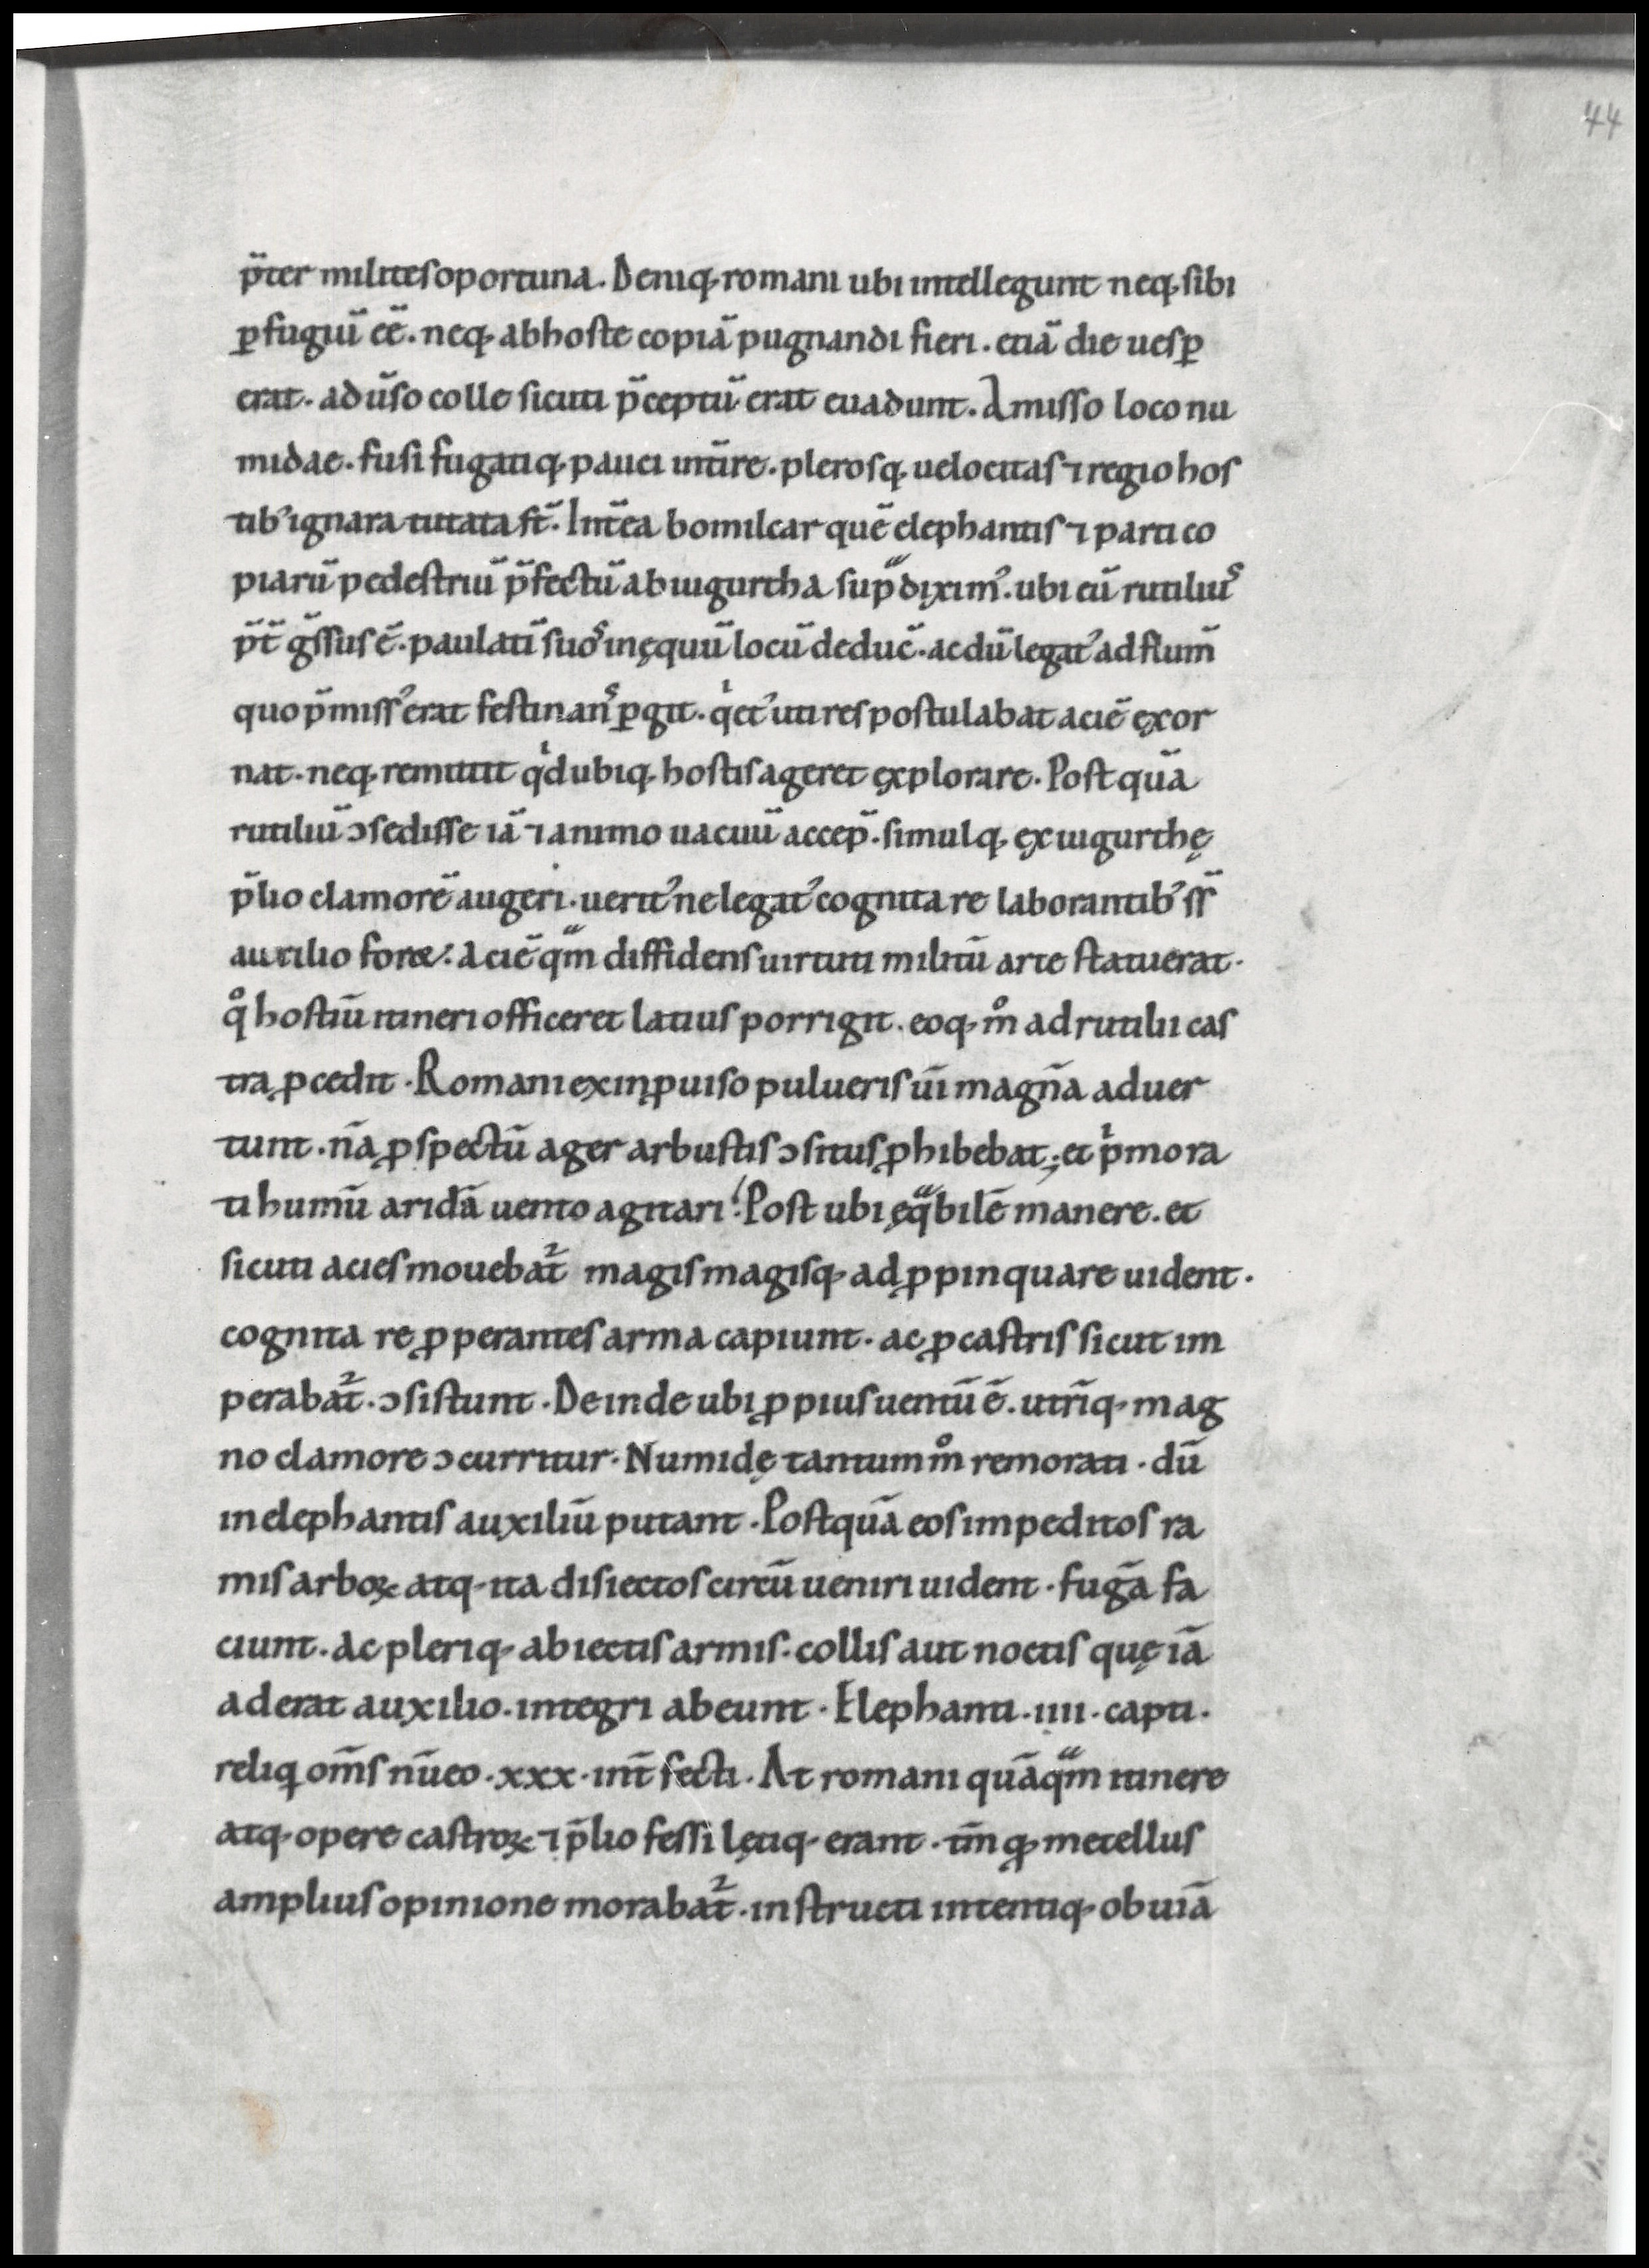 44
p̄ter milites oportuna. Deniq; romani ubi intellegunt neq; sibi
ꝑfugiū eē. neq; ab hoste copiā pugnandi fieri. etiā die uesꝑ
erat. adūso colle sicuti p̄ceptū erat euadunt. Amisso loco nu
midae. fusi fugatiq; pauci intīre. plerosq; uelocitas ⁊ regio hos
tibꝰ ignara tutata st̄. Intēa bomilcar quē elephantis ⁊ parti co
piarū pedestriū p̄fectū ab iugurtha supᵃ diximꝰ. ubi eū rutiliuˢ
p̄t̄ gs̄sus ē. paulatī suoˢ in ęquū locū deduc̄. ac dū legatꝰ ad flum̄
quo p̄missꝰ erat festinanˢ ꝑgit. qⁱetꝰ uti res postulabat aciē ęxor
nat. neq; remittit qⁱd ubiq; hostis ageret ęxplorare. Postquā
rutiliū ɔsedisse iā ⁊ animo uacuū accep̄. simulq; ęx iugurthę
p̄lio clamorē augeri. ueritꝰ ne legatꝰ cognita re laborantibꝰ ss̄
auxilio foret. aciē qᵃm diffidens uirtuti militū arte statuerat.
qº hostiū itineri officeret latius porrigit. eoq; mº ad rutilii cas
tra ꝓcedit. Romani ex inꝓuiso pulueris uī magnā aduer
tunt. nā ꝓspectū ager arbustis ɔsitus ꝓhibebat; et pⁱmo ra
ti humū aridā uento agitari. Post ubi ęqᵃbilē manere. et
sicuti acies mouebat᷑ magis magisq; adꝓpinquare uident.
cognita re ꝓperantes arma capiunt. ac ꝓ castris sicut im
perabat᷑. ɔsistunt. Deinde ubi ꝓpius uentū ē. utrīq; mag
no clamore ɔcurritur. Numidę tantum mº remorati. dū
in elephantis auxiliū putant. Postquā eos impeditos ra
mis arboꝝ atq; ita disiectos circū ueniri uident. fugā fa
ciunt. ac pleriq; abiectis armis. collis aut noctis quę iā
aderat auxilio. integri abeunt. Elephanti. iiii. capti.
reliq; om̄s nūeo. xxx. int̄fecti. At romani quāqᵃm itinere
atq; opere castroꝝ ⁊ p̄lio fessi lętiq; erant. tm̄ qꝫ metellus
amplius opinione morabat᷑. instructi intentiq; obuiā